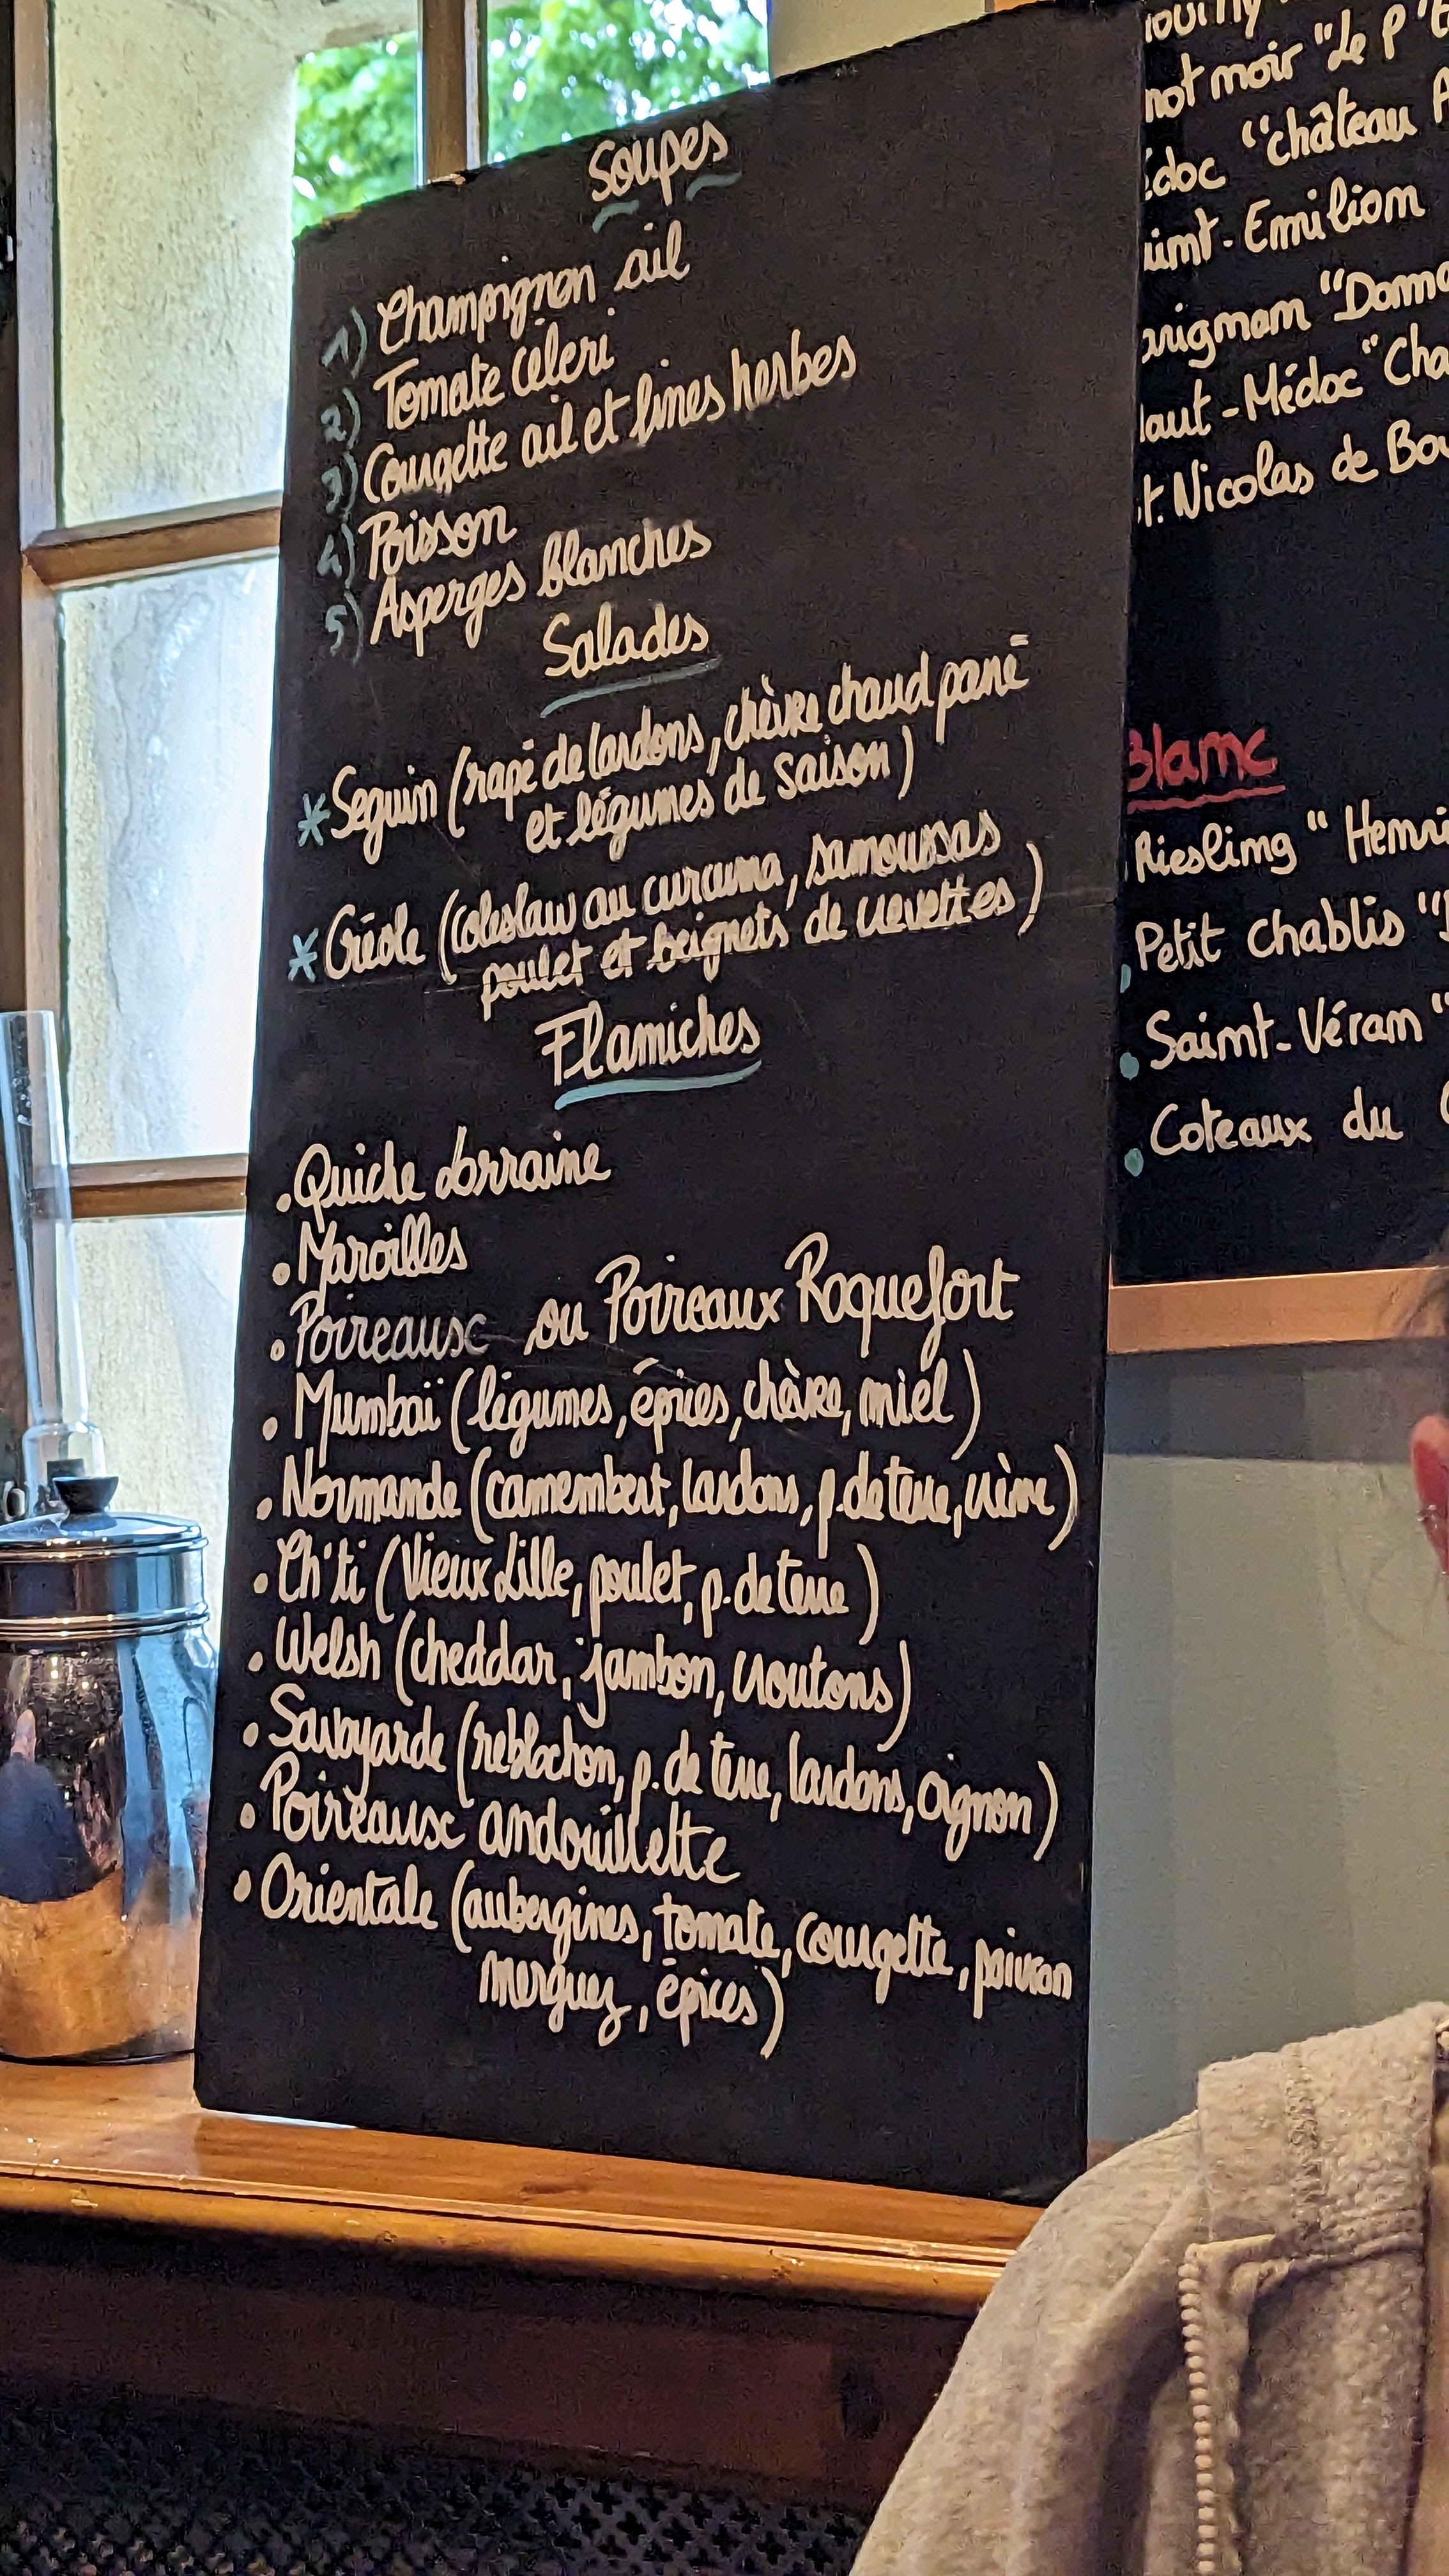 Soupes
1) Champignon ail
2) Tomate céleri
3) Courgette ail et fines herbes
4) Poisson
5) Asperges blanches
Salades
* Seguin (rapé de lardons, chèvre chaud pané
et légumes de saison)
* Créole (coleslaw au curcuma, samoussas
poulet et beignets de crevettes)
Flamiches
• Quiche Lorraine
• Maroilles
• Poireaux ou Poireaux Roquefort
• Mumbaï (légumes, épices, chèvre, miel)
• Normande (camembert, lardons, p. de terre, crème)
• Ch'ti (Vieux Lille, poulet, p. de terre)
• Welsh (cheddar, jambon, croutons)
• Savoyarde (reblochon, p. de terre, lardons, oignon)
• Poireaux andouillette
• Orientale (aubergines, tomate, courgette, poivron
merguez, épices)
not noir "Le P'
édoc "château
aint-Emilion
arignan "Doma
Haut-Médoc "Cha
t. Nicolas de Bou
Blanc
Riesling "Henri
Petit Chablis "
• Saint-Véran "
• Coteaux du